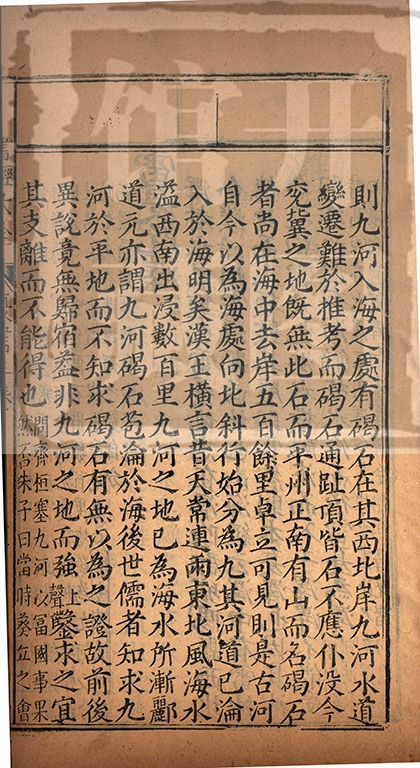 則九河入海之處有碣石在其西北岸九河水道
變遷難於推考而碣石通趾頂皆石不應仆没今
兖冀之地既無此石而平州正南有山而名碣石
者尚在海中去岸五百餘里卓立可見則是古河
自今以為海處向北斜行始分為九其河道已淪
入於海明矣漢王橫言昔天常連雨東北風海水
溢西南出浸數百里九河之地已為海水所漸酈
道元亦謂九河碣石苞淪於海後世儒者知求九
河於平地而不知求碣石有無以為之證故前後
異説竟無歸宿蓋非九河之地而強上聲鑿求之宜
其支離而不能得也問齊桓塞九河以富國事果
然否朱子曰當時葵丘之會